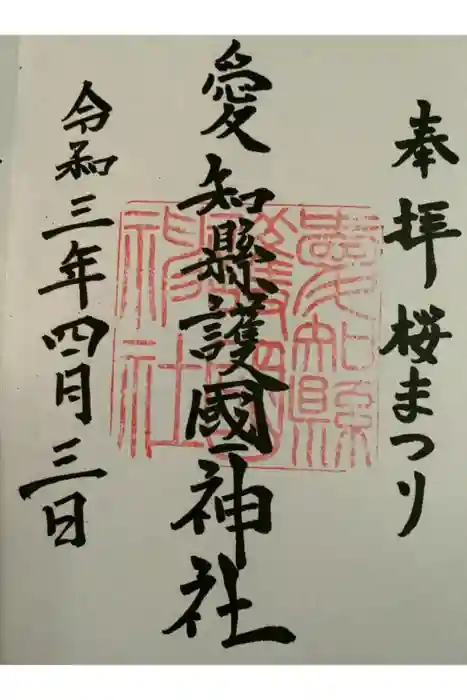 奉拝 桜まつり
愛知縣護國神社
愛知縣
護國
神社
令和三年四月三日